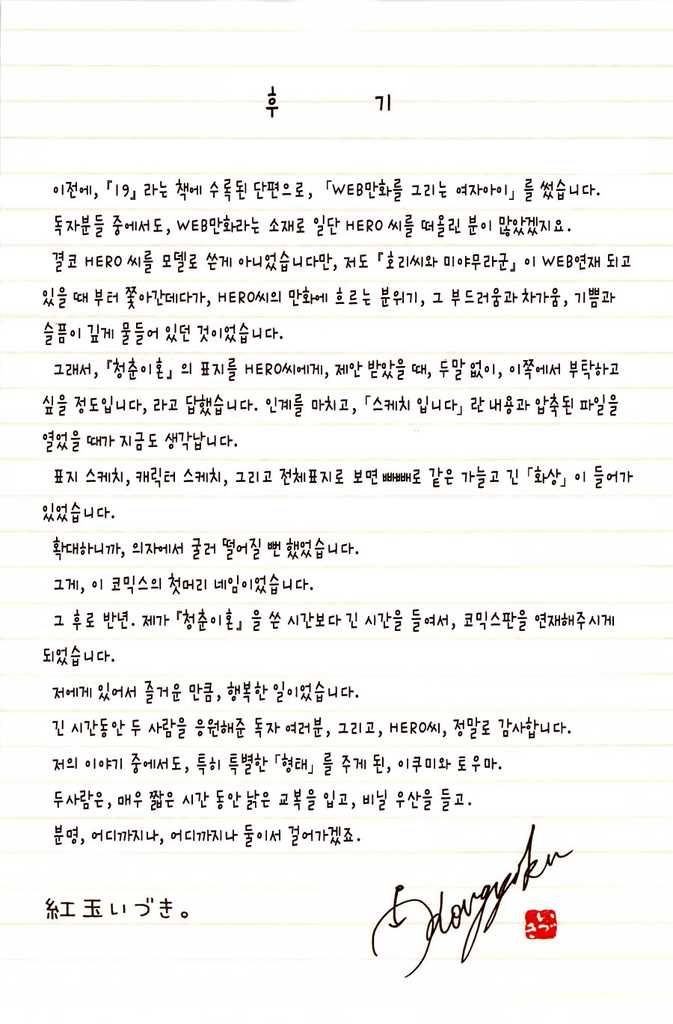 후 기
이전에, 『19』 라는 책에 수록된 단편으로, 「WEB만화를 그리는 여자아이」 를 썼습니다.
독자분들 중에서도, WEB만화라는 소재로 일단 HERO 씨를 떠올린 분이 많았겠지요.
결코 HERO 씨를 모델로 쓴게 아니었습니다만, 저도 『호리씨와 미야무라군』 이 WEB연재 되고
있을 때 부터 쫓아간데다가, HERO씨의 만화에 흐르는 분위기, 그 부드러움과 차가움, 기쁨과
슬픔이 깊게 물들어 있던 것이었습니다.
그래서, 『청춘이혼』 의 표지를 HERO씨에게, 제안 받았을 때, 두말 없이, 이쪽에서 부탁하고
싶을 정도입니다, 라고 답했습니다. 인계를 마치고, 「스케치 입니다」 란 내용과 압축된 파일을
열었을 때가 지금도 생각납니다.
표지 스케치, 캐릭터 스케치, 그리고 전체표지로 보면 빼빼로 같은 가늘고 긴 「화상」 이 들어가
있었습니다.
확대하니까, 의자에서 굴러 떨어질 뻔 했었습니다.
그게, 이 코믹스의 첫머리 네임이었습니다.
그 후로 반년. 제가 『청춘이혼』 을 쓴 시간보다 긴 시간을 들여서, 코믹스판을 연재해주시게
되었습니다.
저에게 있어서 즐거운 만큼, 행복한 일이었습니다.
긴 시간동안 두 사람을 응원해준 독자 여러분, 그리고, HERO씨, 정말로 감사합니다.
저의 이야기 중에서도, 특히 특별한 「형태」 를 주게 된, 이쿠미와 토우마.
두사람은, 매우 짧은 시간 동안 낡은 교복을 입고, 비닐 우산을 들고.
분명, 어디까지나, 어디까지나 둘이서 걸어가겠죠.
紅玉いづき。
いづき